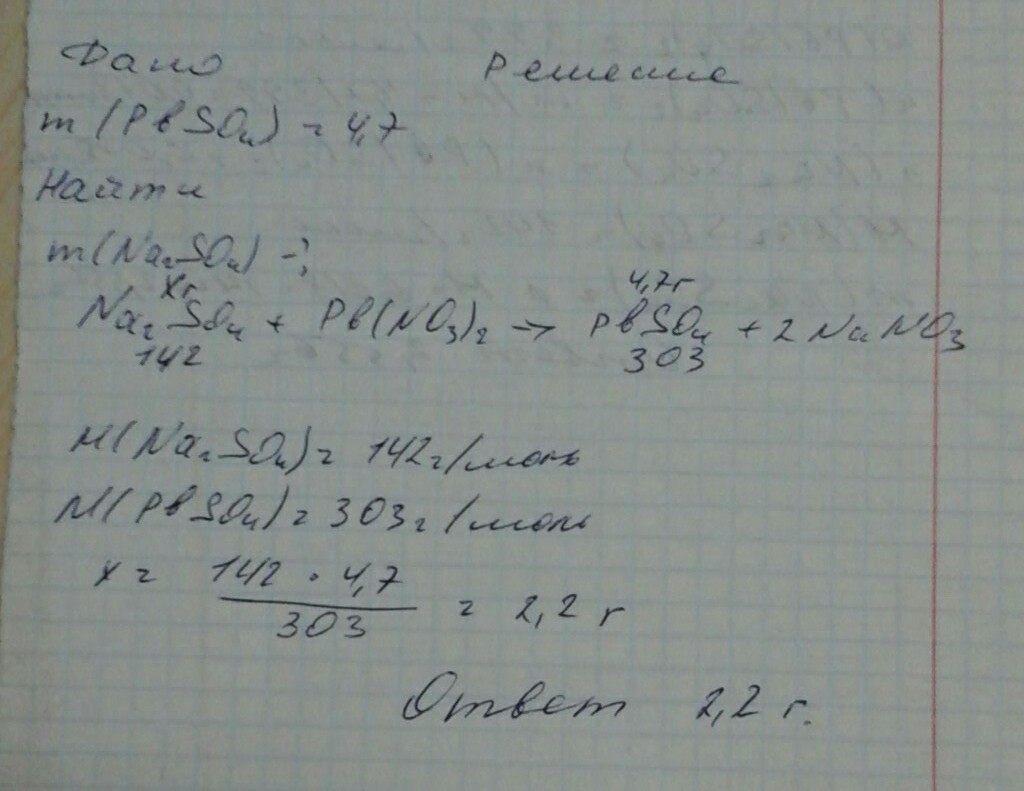 Дано Решение
m(PbSO₄) = 4,7
Найти
m(Na₂SO₄) -?
xг 4,7г
Na₂SO₄ + Pb(NO₃)₂ → PbSO₄ + 2NaNO₃
142 303
M(Na₂SO₄) = 142г/моль
M(PbSO₄) = 303г/моль
x = 142 · 4,7
303
= 2,2 г
Ответ 2,2 г.